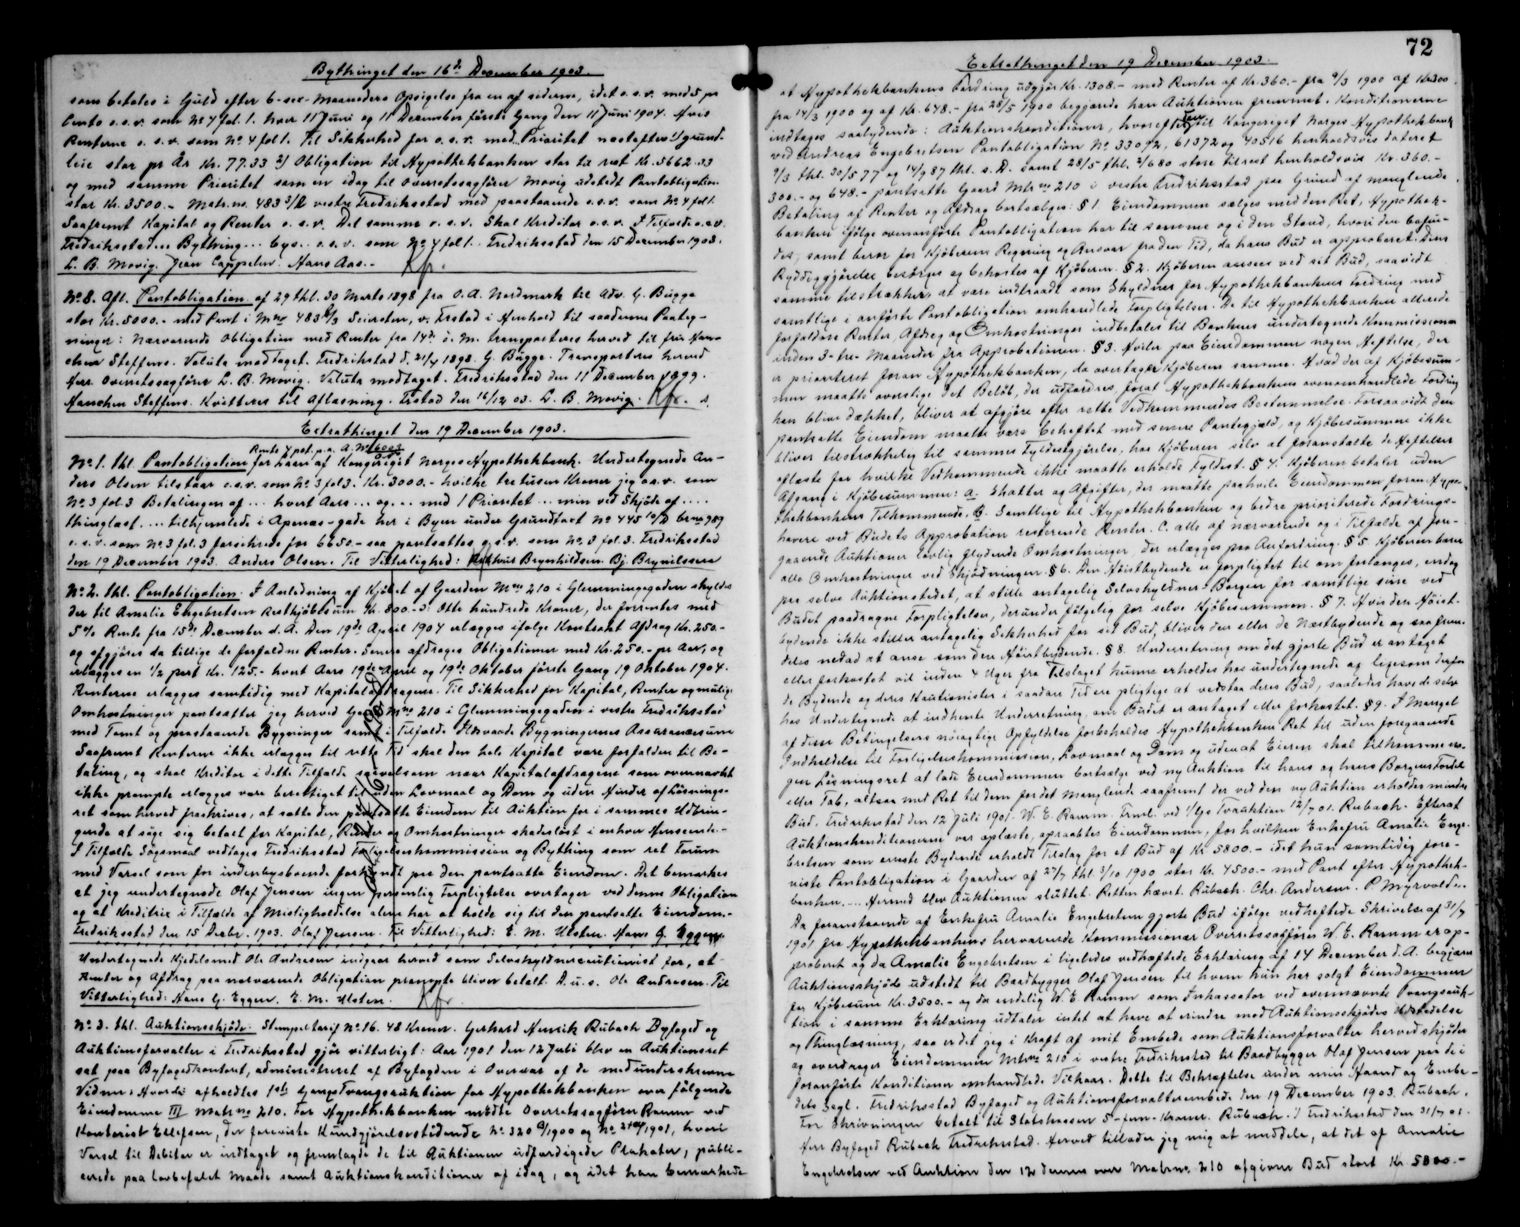 Bythinget den 16de December 1903.
som betales i Guld efter 6-sex-Maaneders Opsigelse fra en af siderne, idet o.s.v. med 5 pr
Cento o.s.v. som No 4 fol. 1. hver 11 Juni og 11 December første Gang den 11 Juni 1904. Hvis
Renterne o.s.v. som No 4 fol 1. Til Sikkerhed for o.s.v. med Prioritet næstefter 1/ grund-
leie stor pr År Kr. 77.33 2/ Obligation til Hypothekbanken stor til rest Kr. 5662.33
og med samme Prioritet som en idag til Overretssagfører Movig udstedt Pantobligation
stor Kr. 3500.- Matr. no. 483 vestre Fredriksstad med paastaaende o.s.v. som No 4 fol 1.
Saafremt Kapital og Renter o.s.v. Det samme o.s.v. Skal Kreditor o.s.v. I Tilfælde o.s.v.
Fredriksstad... Bything... Bys... o.s.v. som No 4 fol 1. Fredriksstad den 15 December 1903.
L. B. Movig. Jean Cappelen. Hans Aas.-
No 8. Afl. Pantobligation af 29 thl. 30 Marts 1898 fra O. A. Nordmark til Adv. G. Bügge
stor Kr. 5000.- med Pant i Mno 483 v. Frstad i Henhold til saadanne Paateg-
ninger: Nærværende Obligation med Renter fra 14de d. M. transporteres herved til frü Han-
chen Steffens. Valuta modtaget. Fredriksstad d. 21/4 1898. G. Bügge. Transporteres herved
Herr Overretssagfører L. B. Movig. Valuta modtaget. Fredriksstad den 11 December 1899.
Hanchen Steffens. Kvitteres til Aflæsning. Frstad den 16/12 03. L. B. Movig.
Extrathinget den 19 December 1903.
Rente 4 pct. p.a. A. No
No 1. thl. Pantobligation for Laan af Kongeriget Norges Hypothekbank. Undertegnede An-
ders Olsen tilstaar o.s.v. som No 3 fol 3. Kr. 3000.- hvilke tre tusen Kroner jeg o.s.v. som
No 3 fol 3 Betalingen af ... hvert Aars ... og ... med 1 Prioritet ... min ved Skjøde af ....
thinglæst .... tilhjemlede i Apenæs-gade her i Byen under Grundtaxt No 445
o.s.v. som No 3 fol. 3 forsikrede for 6650.- saa pantsattes o.s.v. som No 3 fol 3. Fredriksstad
den 19 December 1903. Anders Olsen. Til Vitterlighed: Brynhildsen. Bj. Brynildsen
No 2. thl. Pantobligation. I Anledning af Kjøbet af Gaarden Mno 210 i Glemmingegaden skyldes
der til Amalie Engebretsen Restkjøbesum Kr. 800.- d: Otte hundrede Kroner, der forrentes med
5% Rente fra 15de December d. A. Den 19de April 1904 erlægges ifølge Kontrakt Afdrag Kr. 250.-
og afgjøres da tillige de forfaldne Renter. Senere afdrages Obligationen med Kr. 250.- pr Aar, og
erlægges en 1/2 part Kr. 125.- hvert Aars 19de April og 19de Oktober første Gang 19 Oktober 1904.
Renterne erlægges samtidig med Kapitalafdragene. Til Sikkerhed for Kapital, Renter og mulige
Omkostninger pantsætter jeg herved Gaard Mno 210 i Glemmingegaden i vestre Fredriksstad
med Tomt og paastaaende Bygninger samt i Tilfælde Ildsvaade Bygningernes Assurancesum
Saafremt Renterne ikke erlægges til rette Tid skal den hele Kapital være forfalden til Be-
taling, og skal Kreditor i dette Tilfælde saavelsom naar Kapitalafdragene som ovennævnt
ikke prompte erlægges være berettiget til uden Lovmaal og Dom og uden Hinder af Løsnings-
ret som herved fraskrives, at sætte den pantsatte Eiendom til Auktion for i sammes Udbrin-
gende at søge sig betalt for Kapital, Renter og Omkostninger skadesløst i enhver Henseende.-
I Tilfælde Søgsmaal vedtages Fredriksstad Forligelseskommission og Bything som ret Forum
med Varsel som for indenbysboende forkyndt paa den pantsatte Eiendom. Det bemærkes
at jeg undertegnede Olaf Jensen ingen personlig Forpligtelse overtager ved denne Obligation
og at Kreditor i Tilfælde af Misligholdelse alene har at holde sig til den pantsatte Eiendom.-
Fredriksstad den 15 Decbr. 1903. Olaf Jensen. Til Vitterlighed: E. M. Ulsten. Hans G. Eggen
Undertegnede Kjedelsmed Ole Andresen indgaar herved som Selvskyldnerkautionist for, at
Renter og Afdrag paa nærværende Obligation prompte bliver betalt. D.u.s. Ole Andresen. Til
Vitterlighed: Hans G. Eggen. E. M. Ulsten.
No 3. thl. Auktionsskjøde. Stempeltarif No 16. 48 Kroner. Gerhard Henrik Rubach Byfoged og
Auktionsforvalter i Fredriksstad gjør vitterligt: Aar 1901 den 12 Juli blev en Auktionsret
sat paa Byfogedkontoret, administreret af Byfogden i Overvær af de medunderskrevne
Vidner. Hvorda afholdtes 1ste Gangs Tvangsauktion for Hypothekbanken over følgende
Eiendomme III Matr no 210. For Hypothekbanken mødte Overretssagfører Ramm ved
Kontorist Ellefsen, der foreviste Kundgjørelsestidende No 320 /1900 og No /1901, hvori
Varsel til Debitor er indtaget og fremlagde de til Auktionen udfærdigede Plakater, publi-
cerede paa lovbefalet Maade samt Auktionskonditioner af idag, og idet han bemærkede
72
Extrathinget den 19 December 1903.
at Hypothekbankens Fordring udgjør Kr. 1308.- med Renter af Kr. 360.- fra 9/3 1900 af Kr 300.
fra 14/3 1900 og af Kr. 648.- fra 28/5 1900 begjærede han Auktionen fremmet. Konditionerne
indtages saalydende: Auktionskonditioner, hvorefter den til Kongeriget Norges Hypothekbank
ved Andreas Engebretsen Pantobligation No 33072, 61372 og 40516 henholdsvis dateret
9/3 thl. 30/5 77 og 14/9 87 thl. s. D. samt 28/5 thl. 2/6 80 store tilrest henholdsvis Kr. 360.-
300.- og 648.- pantsatte Gaard Mtr no 210 i vestre Fredriksstad paa Grund af manglende
Betaling af Renter og Afdrag bortsælges: § 1. Eiendommen sælges med den Ret, Hypothek-
banken ifølge ovenanførte Pantobligation har til samme og i den Stand, hvori den befin-
des, samt beror for Kjøberens Regning og Ansvar fra den Tid, da hans Bud er approberet. Dens
Ryddiggjørelse besørges og bekostes af Kjøberen. § 2. Kjøberen ansees ved sit Bud, saavidt
samme tilstrækker, at være indtraadt som Skyldner for Hypothekbankens Fordring med
samtlige i anførte Pantobligation omhandlede Forpligtelser. De til Hypothekbanken allerede
forfaldne Renter, Afdrag og Omkostninger indbetales til Bankens undertegnede Kommissionær
inden 3-tre- Maaneder fra Approbationen. § 3. Hviler paa Eiendommen nogen Heftelse, der
er prioriteret foran Hypothekbanken, da overtager Kjøberen samme. Hvad der af Kjøbesum-
men maatte overstige det Beløb, der udfordres, forat Hypothekbankens ovenomhandlede Fordring
kan blive dækket, bliver at afgjøre efter rette Vedkommendes Bestemmelse. Forsaavidt den
pantsatte Eiendom maatte være beheftet med senere Pantegjæld, og Kjøbesummen ikke
bliver tilstrækkelig til sammes Fyldestgjørelse, har Kjøberen selv at foranstalte de Heftelser
aflæste for hvilke Vedkommende ikke maatte erholde fyldest. § 4. Kjøberen betaler uden
Afgang i Kjøbesummen: a. Skatter og Afgifter, der maatte paahvile Eiendommen foran Hypo-
thekbankens Tilkommende. b. Samtlige til Hypothekbanken og bedre prioriterede Fordrings-
havere ved Budets Approbation resterende Renter. c. alle af nærværende og i Tilfælde af fore-
gaaende Auktioner lovlig flydende Omkostninger, der erlægges paa Anfordring. § 5. Kjøberen bærer
alle Omkostninger ved Skjødningen. § 6. Den Høistbydende er forpligtet til om forlanges, endog
paa selve Auktionsstedet, at stille antagelig Selvskyldner-Borgen for samtlige sine ved
Budet paadragne Forpligtelser, derunder følgelig for selve Kjøbesummen. § 7. Hvis den Høist-
bydende ikke stiller antagelig Sikkerhed for sit Bud, bliver den eller de Næstbydende og saa frem-
deles nedad at anse som den Høistbydende. § 8. Underretning om det gjorte Bud er antaget
eller forkastet vil inden 4 Uger fra Tilslaget kunne erholdes hos undertegnede og ligesom derfor
de Bydende og deres Kautionister i saadan Tid ere pligtige at vedstaa deres Bud, saaledes have de selv
hos Undertegnede at indhente Underretning, om Budet er antaget eller forkastet. § 9. I Mangel
af disse Betingelsers nøiagtige Opfyldelse forbeholdes Hypothekbanken Ret til uden foregaaende
Indkaldelse til Forligelseskommission, Lovmaal og Dom og uden at Eieren skal tilkomme no-
gen Løsningsret at lade Eiendommen bortsælge ved ny Auktion til hans og hans Borgeres Fordel
eller Tab, altsaa med Ret til dem for det Manglende saafremt der ved den ny Auktion erholdes mindre
Bud. Fredriksstad den 12 Juli 1901. W. E. Ramm. Fremlagt ved 1ste Ggs Tvauktion 12/7 01. Rubach. Efterat
Auktionskonditionerne var oplæste, opraabtes Eiendommen, for hvilken Enkefru Amalie Enge-
bretsen som eneste Bydende erholdt Tilslag for et Bud af Kr 5800.- idet hun samtidig fore-
viste Pantobligation i Gaarden af 27/7 thl 3/10 1900 stor Kr. 4500.- med Pant efter Hypothek-
banken. .... Hermed blev Auktionen sluttet. Retten hævet. Rubach. Chr. Andersen. P. Myrvold...
Da foranstaaende af Enkefru Amalie Engebretsen gjorte Bud ifølge vedheftede Skrivelse af 31/7
1901 fra Hypothekbankens herværende Kommissionær Overretssagfører W. E. Ramm er ap-
proberet og da Amalie Engebretsen i ligeledes vedheftede Erklæring af 14 December d. A. begjærer
Auktionsskjøde udstedt til Baadbygger Olaf Jensen til hvem hun har solgt Eiendommen
for Kjøbesum Kr. 3500.- og da endelig W. E. Ramm som Inkassator ved ovennævnte Tvangsauk-
tion i samme Erklæring udtaler intet at have at erindre mod Auktionsskjødets Udstedelse
og Thinglæsning, saa er det jeg i Kraft af mit Embede som Auktionsforvalter herved skjøder
og overdrager Eiendommen Mtr no 210 i vestre Fredriksstad til Baadbygger Olaf Jensen paa de i
foranførte Konditioner omhandlede Vilkaar. Dette til Bekræftelse under min Haand og Embe-
dets Segl. Fredriksstad Byfoged og Auktionsforvalterembede den 19 December 1903. Rubach.
For Skrivningen betalt til Statskassen 5-fem-Kroner. Rubach. / Fredriksstad den 31/7 01.
Herr Byfoged Rubach Fredriksstad. Herved tillader jeg mig at meddele, at det af Amalie
Engebretsen ved Auktion den 12 dennes over Matr no. 210 afgivne Bud stort Kr. 5800.-